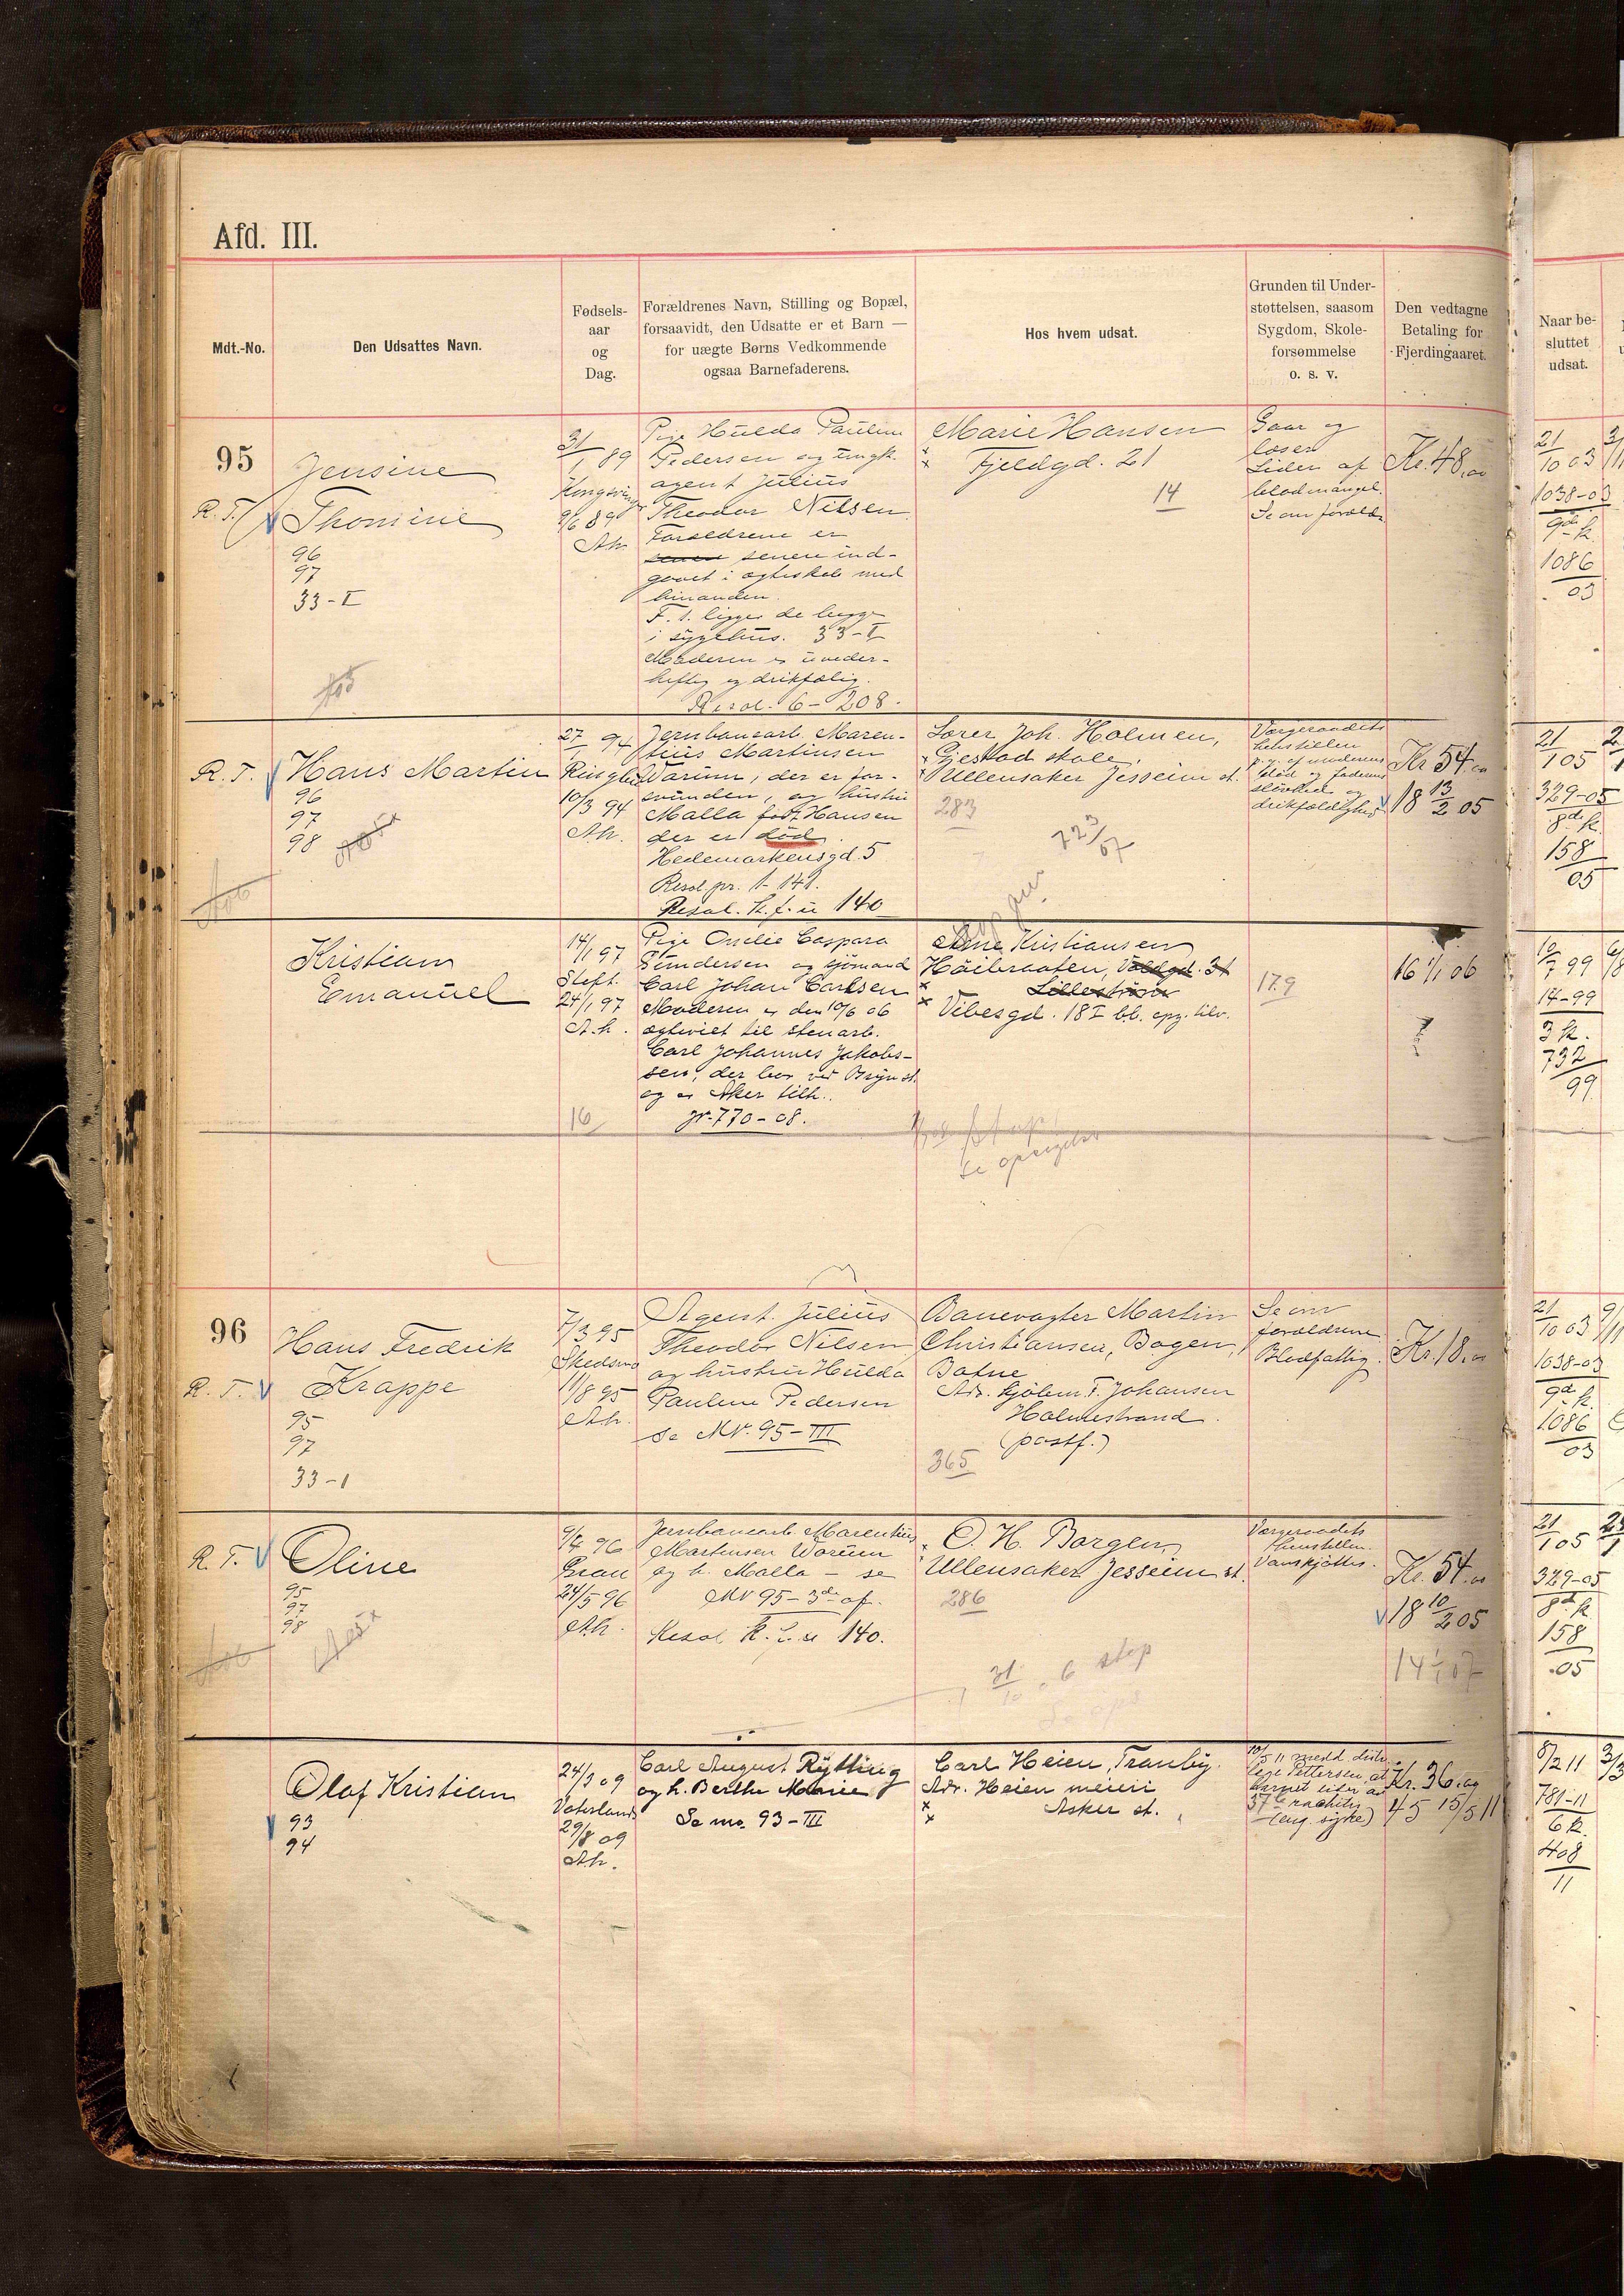 Afd. III.
Mdt.-No.
Den Udsattes Navn.
Fødsels-
aar
og
Dag.
Forældrenes Navn, Stilling og Bopæl,
forsaavidt, den Udsatte er et Barn —
for uægte Børns Vedkommende
ogsaa Barnefaderens.
Hos hvem udsat.
Grunden til Under-
støttelsen, saasom
Sygdom, Skole-
forsømmelse
o. s. v.
Den vedtagne
Betaling for
Fjerdingaaret.
Naar be-
sluttet
udsat.
95
R. T.
Jensine
Thomine
96
97
33-I
31/1 89
9/6 89
Ah
Pige Hulda Pauline
Pedersen og ungk.
agent Julius
Theodor Nilsen
Forældrene er
senere ind-
gaaet i ægteskab med
hinanden.
F. t. ligger de begge
i sygehus. 33-I
Moderen er uveder-
heftig og drikfældig.
Resol. 6-208.
Marie Hansen
Fjeldgd. 21
14
Gaar og
løser
Lider af
blodmangel.
Se om foræld.
Kr. 48,00
21/10 03
1038-03
9de k.
1086
03
R. T.
Hans Martin
96
97
98
27/1 94
10/3 94
Ah.
Jernbanearb. Maren-
tius Martinsen
Worum, der er for-
svunden, og hustru
Malla født Hansen
der er død.
Hedemarkensgd. 5
Resol. pr. 1-141.
Resol. k. f. u 140
Lærer Joh. Holmen,
Gjestad skole,
Ullensaker Jesseim st.
283
Værgeraadets
henstillen
p. g. af moderens
død og faderens
sløvhed og
drikfældighed
Kr 54.00
18 13/2 05
21/1 05
329-05
8de k.
158
05
Kristian
Emanuel
14/1 97
Steft.
24/1 97
A.k.
16
Pige Emilie Caspara
Gundersen og sjømand
Carl Johan Carlsen
Moderen er den 10/6 06
ægteviet til stenarb.
Carl Johannes Jakobs-
sen, der bor ved Bryn st.
og er Aker tilh..
jr. 770-08.
Arne Kristiansen
Høibraaten, Voldgd. 31
Lillestrøm
Vibesgd. 18 I b.b. opg. tilv.
se opsigelse
179
16 1/1 06
10/7 99
17-99
3 k.
732
99
96
R. T.
Hans Fredrik
Krappe
95
97
33-1
7/3 95
Skedsmo
11/8 95
Ah.
Agent Julius
Theodor Nilsen
og hustru Hulda
Pauline Pedersen
se Nr. 95-III
Banevogter Martin
Christiansen, Bogen,
Botne
Adr. kjøbm. F. Johansen
Holmestrand.
(postf.)
365
Se om
forældrene
Blodfattig.
Kr. 18.00
21/10 03
1038-03
9de k.
1086
03
R. T.
Oline
95
97
98
9/4 96
Grau
24/5 96
Ah.
Jernbanearb. Marentius
Martinsen Worum
og h. Malla - se
Nr 95-3de af.
Resol k. f. u 140.
O. H. Borgen
Ullensaker Jesseim st.
286
31/10 06 stop
Værgeraadets
henstillen.
Vanskjøttes.
Kr. 54.00
18 10/2 05
14 1/1 07
21/1 05
329-05
8de k
158
05
Olaf Kristian
93
94
24/3 09
Vaterland
29/8 09
Ah.
Carl August Rytting
og h. Berthe Marie
Se no. 93-III
Carl Heien, Tranby.
Adr. Heien meieri
Asker st.
10/5 11 medd. distr.
læge Pettersen, at
barnet lider af
rachitis
(eng. syke)
Kr. 36.00
45 15/5 11
8/2 11
781-11
6 k.
408
11